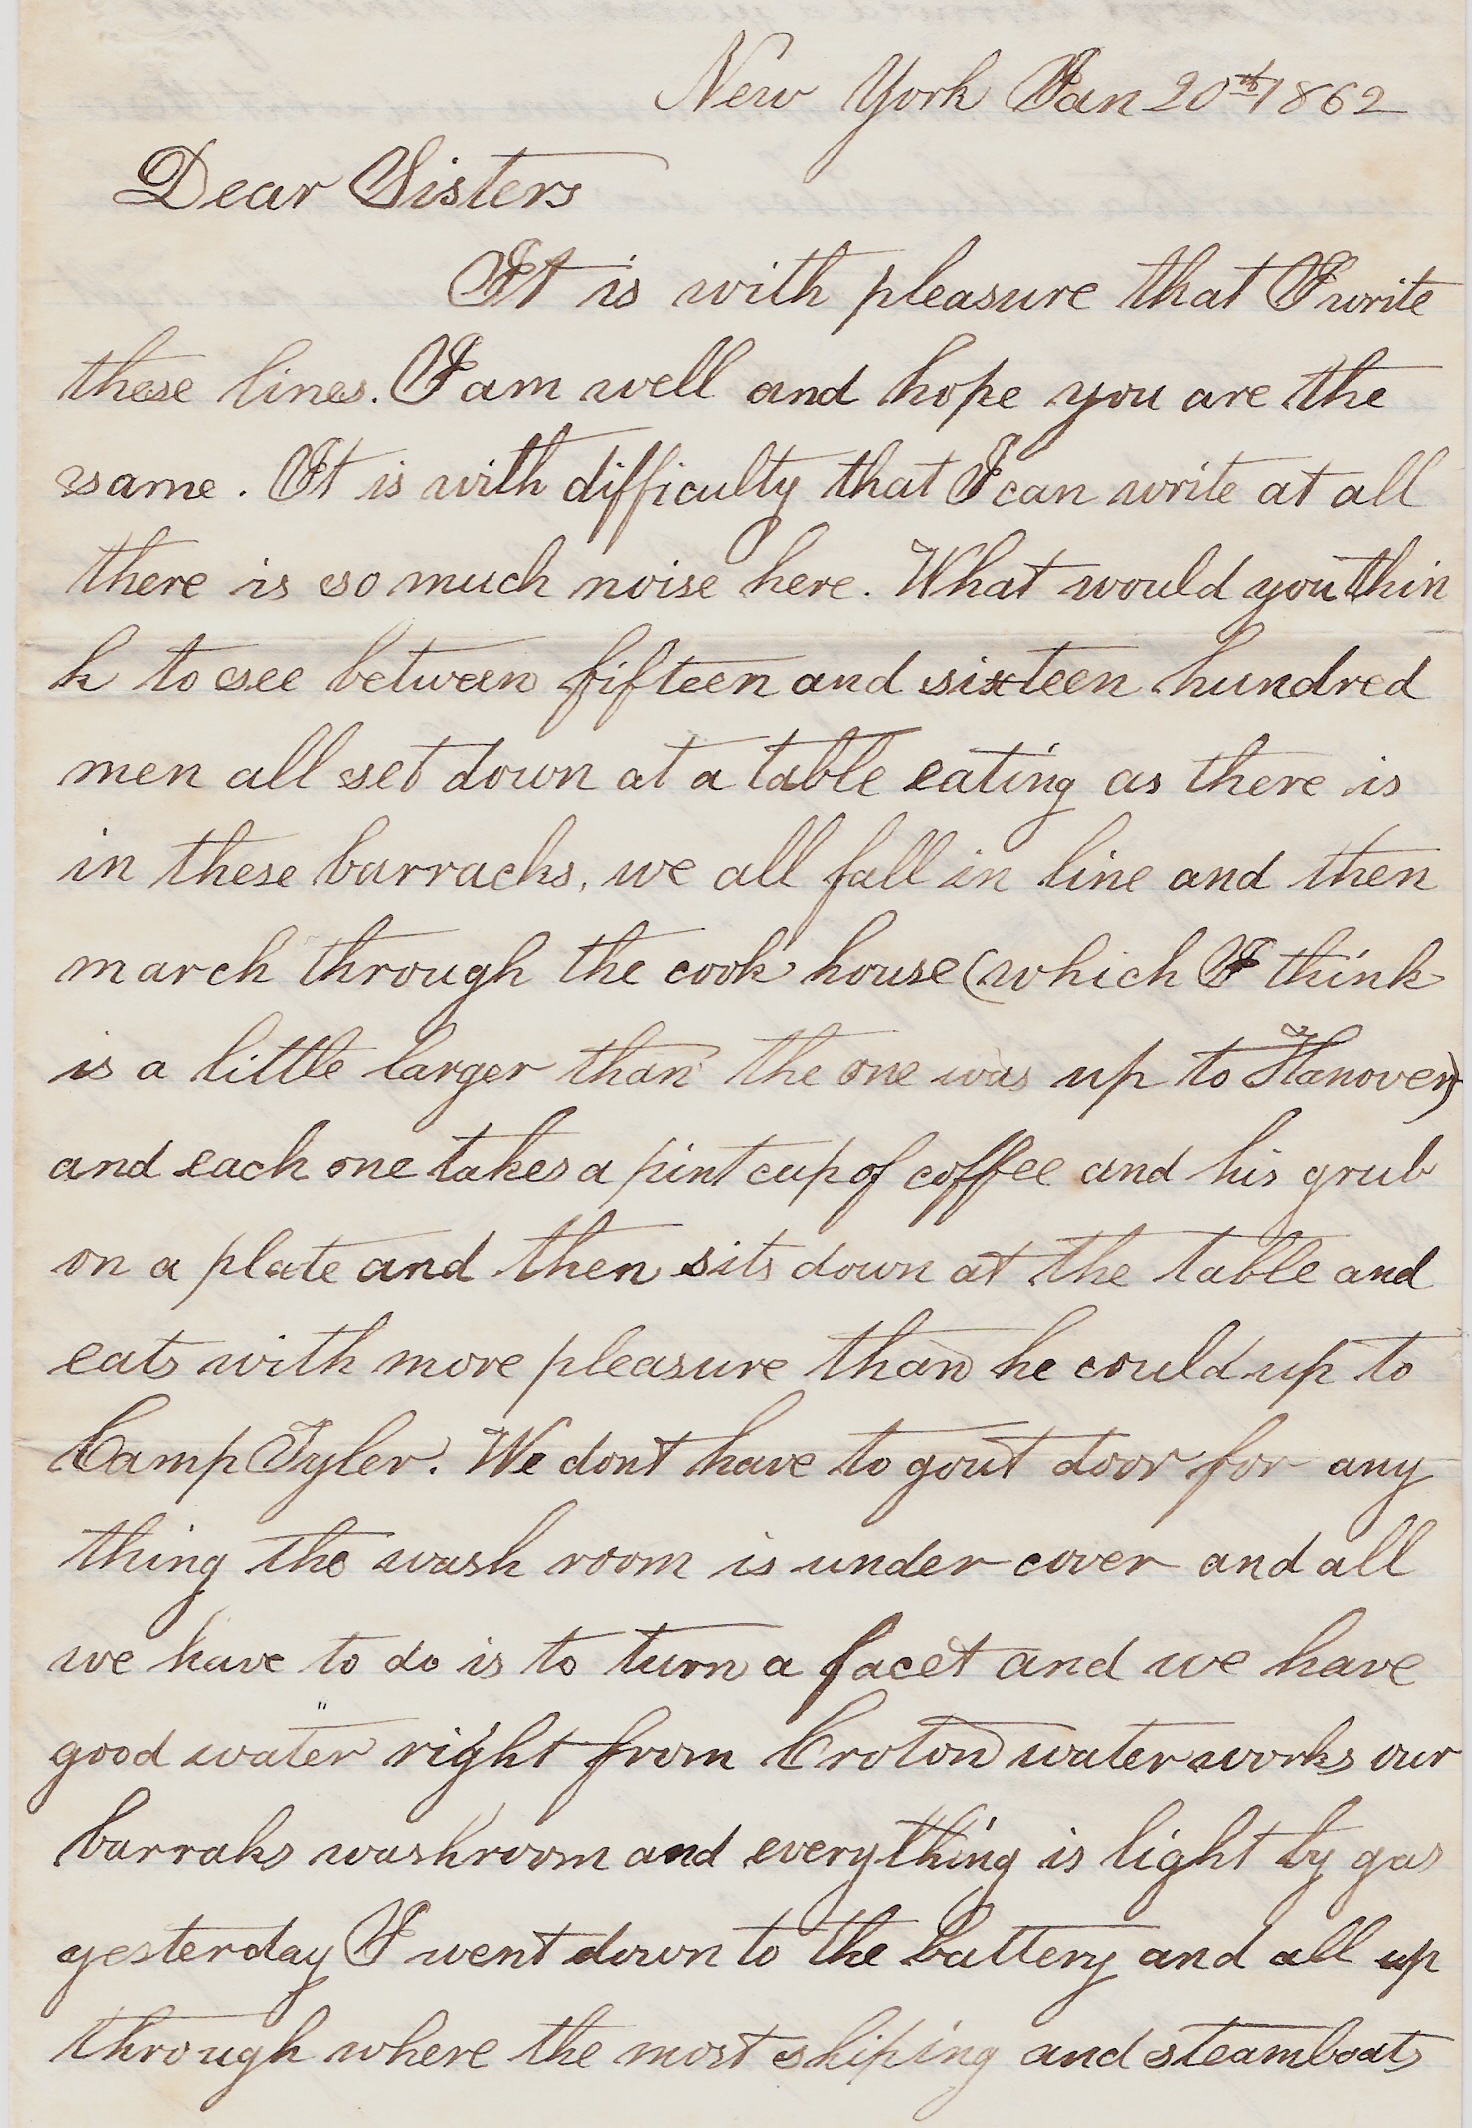 New York Jan 20th 1862
Dear Sisters
It is with pleasure that I write
these lines. I am well and hope you are the
same. It is with difficulty that I can write at all
there is so much noise here. What would you thin
k to see between fifteen and sixteen hundred
men all set down at a table eating as there is
in these barracks, we all fall in line and then
march through the cook house (which I think
is a little larger than the one was up to Hanover)
and each one takes a pint cup of coffee and his grub
on a plate and then sits down at the table and
eats with more pleasure than he could up to
Camp Tyler. We dont have to gout door for any
thing the wash room is under cover and all
we have to do is to turn a facet and we have
good water right from Croton water works our
barraks washroom and everything is light by gas
yesterday I went down to the battery and all up
through where the most shiping and steamboats